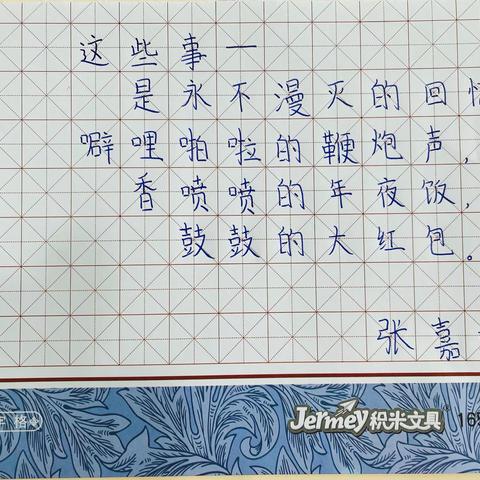 这些事—
是永不漫灭的回忆
噼哩啪啦的鞭炮声，
香喷喷的年夜饭，
鼓鼓的大红包。
张嘉
字格
Jermey积米文具 165